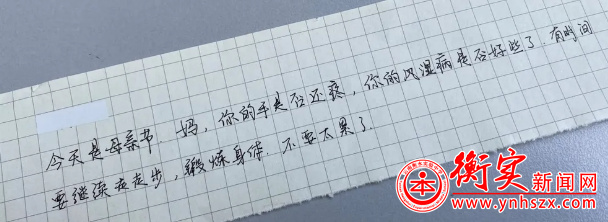 今天是母亲节. 妈,你的手是否还疼,你的风湿病是否好些了.有时间
要继续走走步,锻炼身体.不要太累了.
衡实新闻网
www.ynhszx.com